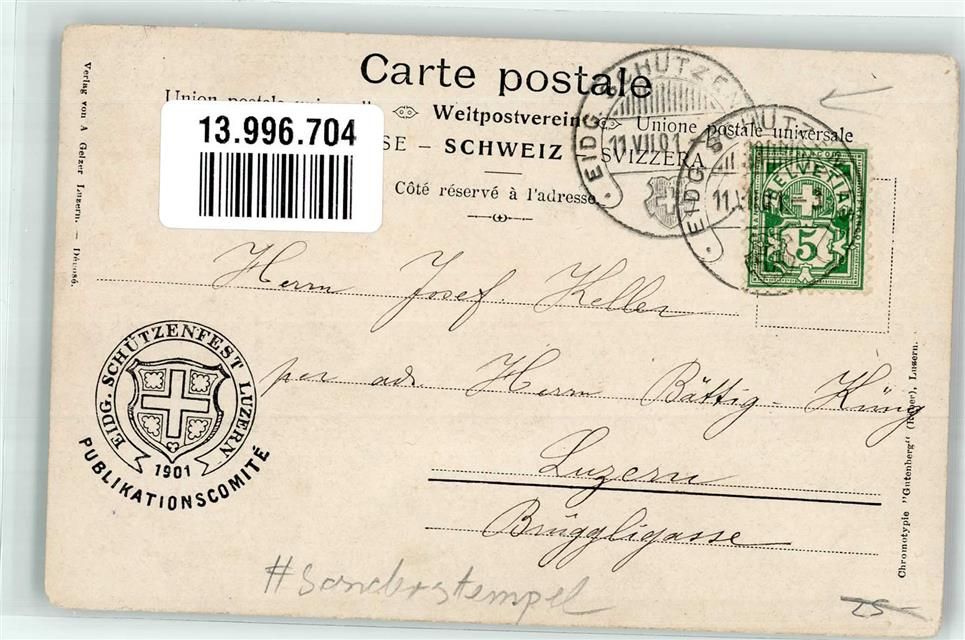 Carte postale
Union postale universelle Weltpostverein Unione postale universale
13.996.704
SSE – SCHWEIZ SVIZZERA
Côté réservé à l'adresse
EIDG. SCHÜTZEN
11.VII.01
EIDG. SCHÜTZEN
11.VII.01 – 3
HELVETIA
5
Verlag von A Gelzer Luzern. – Déposé.
Herrn Josef Keller
per adr. Herrn Bättig-Küng
Luzern
Brüggligasse
EIDG. SCHÜTZENFEST LUZERN
1901
PUBLIKATIONSCOMITÉ
Chromotypie "Gutenberg" Luzern.
#Sonderstempel
25